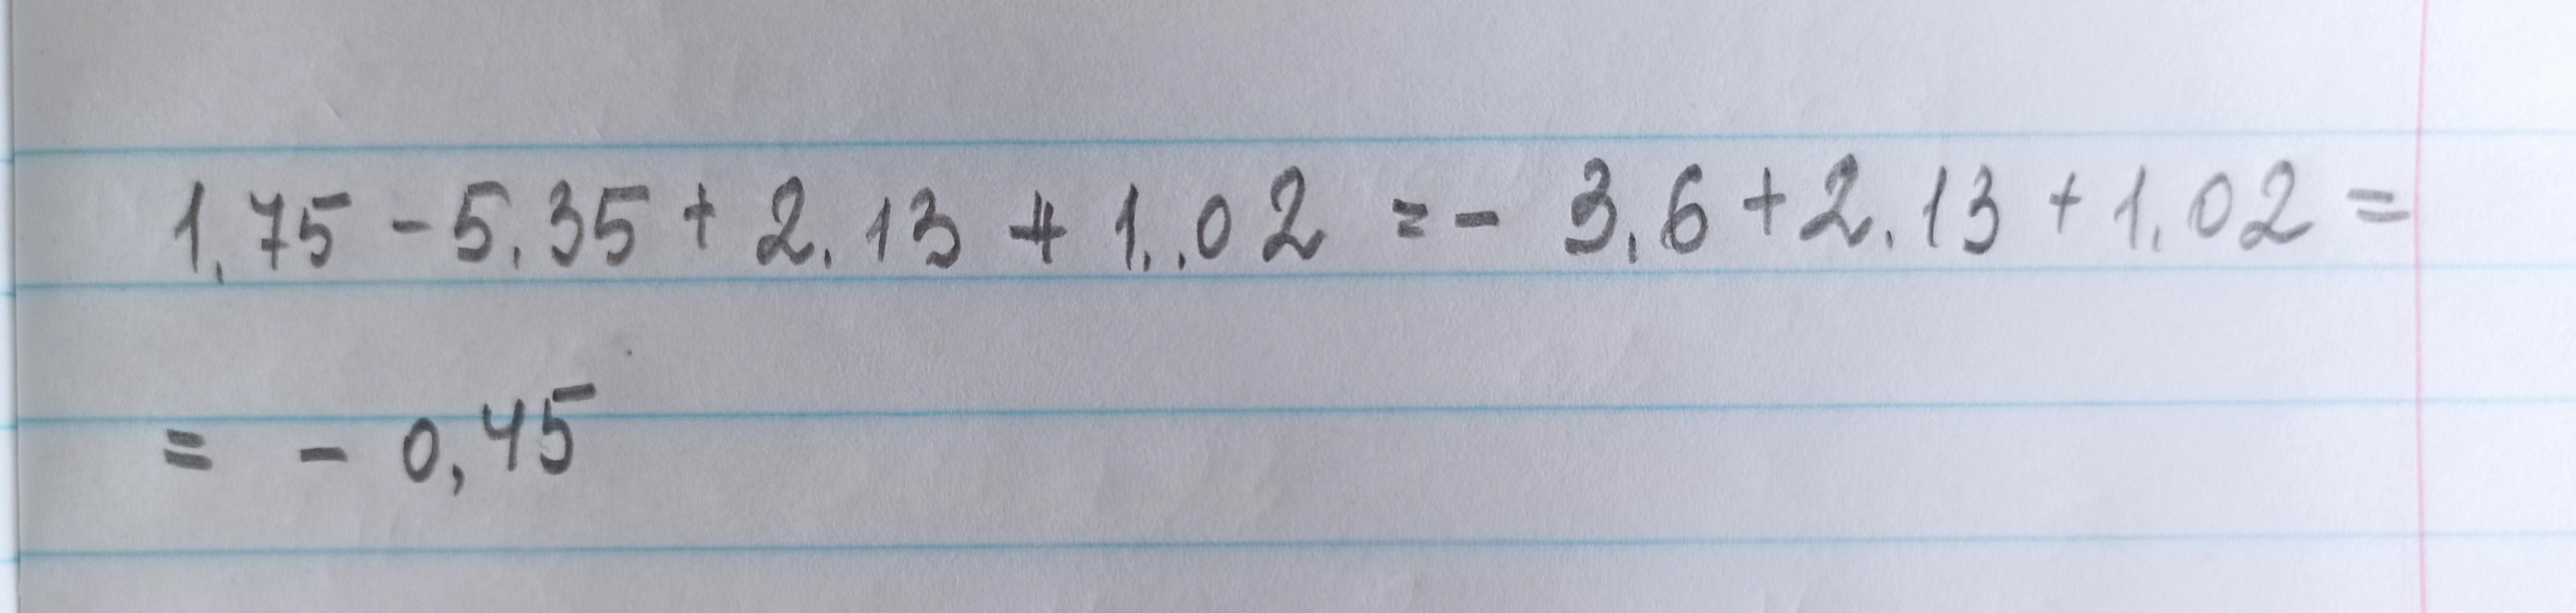 1,75 - 5,35 + 2.13 + 1..02 = - 3,6 + 2.13 + 1,02 =
= - 0,45